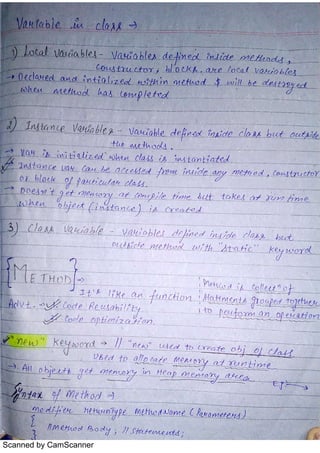 Variable in class →
1) Local Variables - Variables defined inside methods,
constructor, blocks. are local variables
→ Declared and intialized within method & will be destroyed
when method has completed
2) Instance Variables - Variable defined inside class but outside
the methods.
→ Var is initialized when class is instantiated
→ Instance var. can be accessed from inside any method, constructor
or block of particular class.
→ Doesn't get memory at compile time but takes at run time
when object (instance) is created
3) Class Variable - Variables defined inside class but
outside method with "static" keyword
{METHOD} →
It's like an function
Method is collect" of
statements grouped together
to perform an operation
Advt. → Code Reusability
Code optimization
"new" Keyword → // "new" used to create obj of class
used to allocate memory at runtime
→ All objects get memory in Heap memory area
Syntax of Method →
modifier returntype methodName (Parameters)
{
//method Body; // statements;
}
Scanned by CamScanner